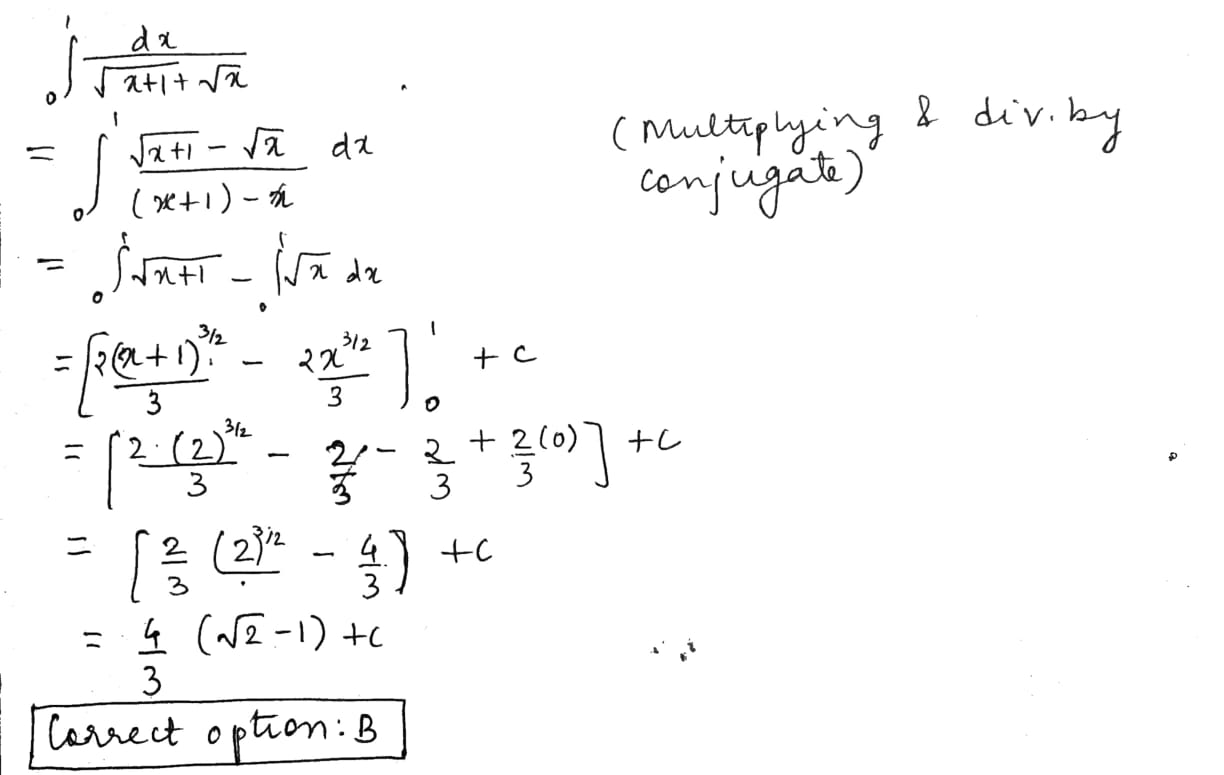 ∫₀¹ dx / (√(x+1) + √x)
= ∫₀¹ (√(x+1) - √x) / ((x+1) - x) dx (Multiplying & div. by
conjugate)
= ∫₀¹ √(x+1) - ∫₀¹ √x dx
= [2(x+1)^(3/2) / 3 - 2x^(3/2) / 3]₀¹ + C
= [2·(2)^(3/2) / 3 - 2/3 - 2/3 + 2(0)/3] + C
= [2/3 (2)^(3/2) - 4/3] + C
= 4/3 (√2 - 1) + C
Correct option: B